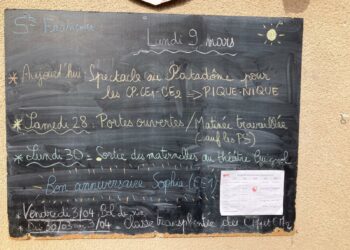 Ste Françoise
Lundi 9 mars
* Aujourd'hui : Spectacle au Patadôme pour
les CP-CE1-CE2 → PIQUE-NIQUE
* Samedi 28 : Portes ouvertes / Matinée travaillée
(sauf les PS)
* Lundi 30 : Sortie des maternelles au théâtre Guignol
Bon anniversaire Sophia (CE1)
Vendredi 3/04
Du 30/03 au 3/04 Classe transplantée des